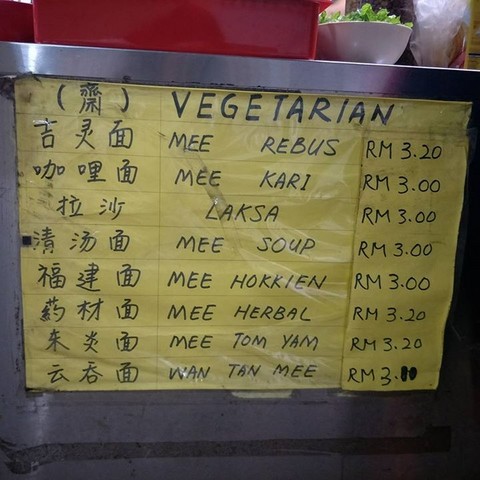 (齋) VEGETARIAN
吉灵面 MEE REBUS RM 3.20
咖哩面 MEE KARI RM 3.00
拉沙 LAKSA RM 3.00
清汤面 MEE SOUP RM 3.00
福建面 MEE HOKKIEN RM 3.00
药材面 MEE HERBAL RM 3.20
朱炎面 MEE TOM YAM RM 3.20
云吞面 WAN TAN MEE RM